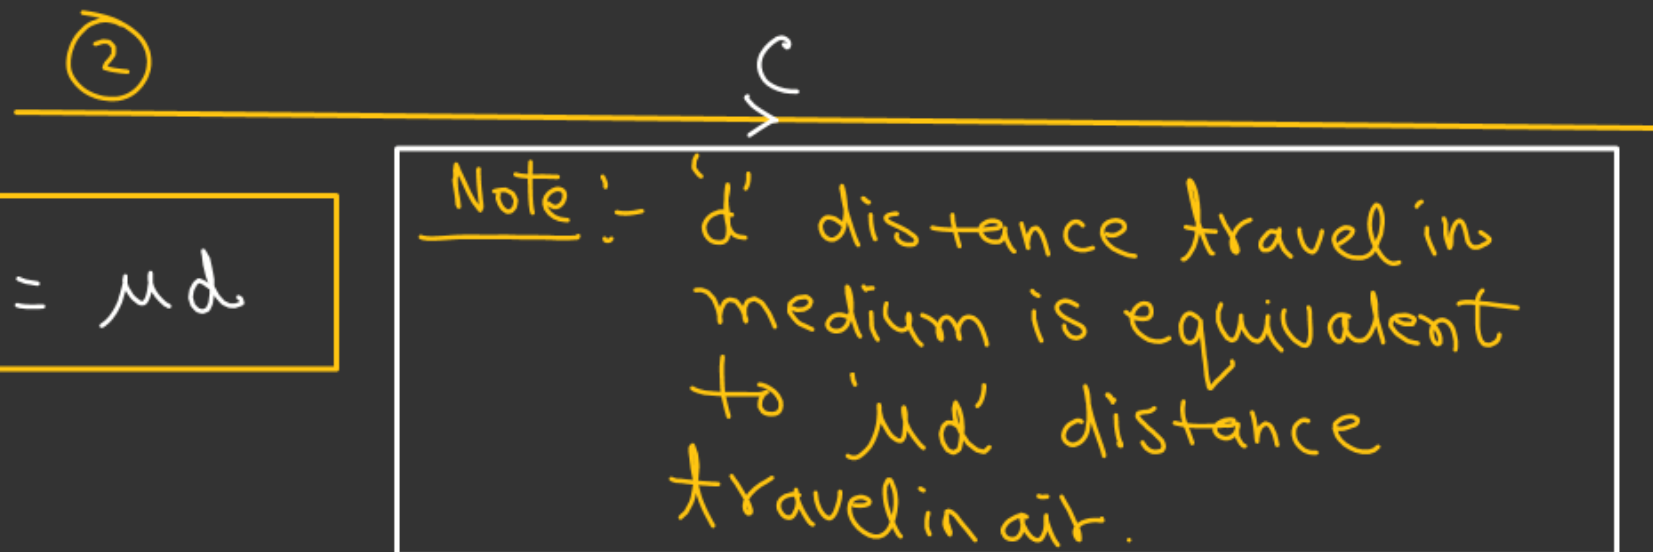 2
C
= μd
Note :- 'd' distance travel in
medium is equivalent
to 'μd' distance
travel in air.